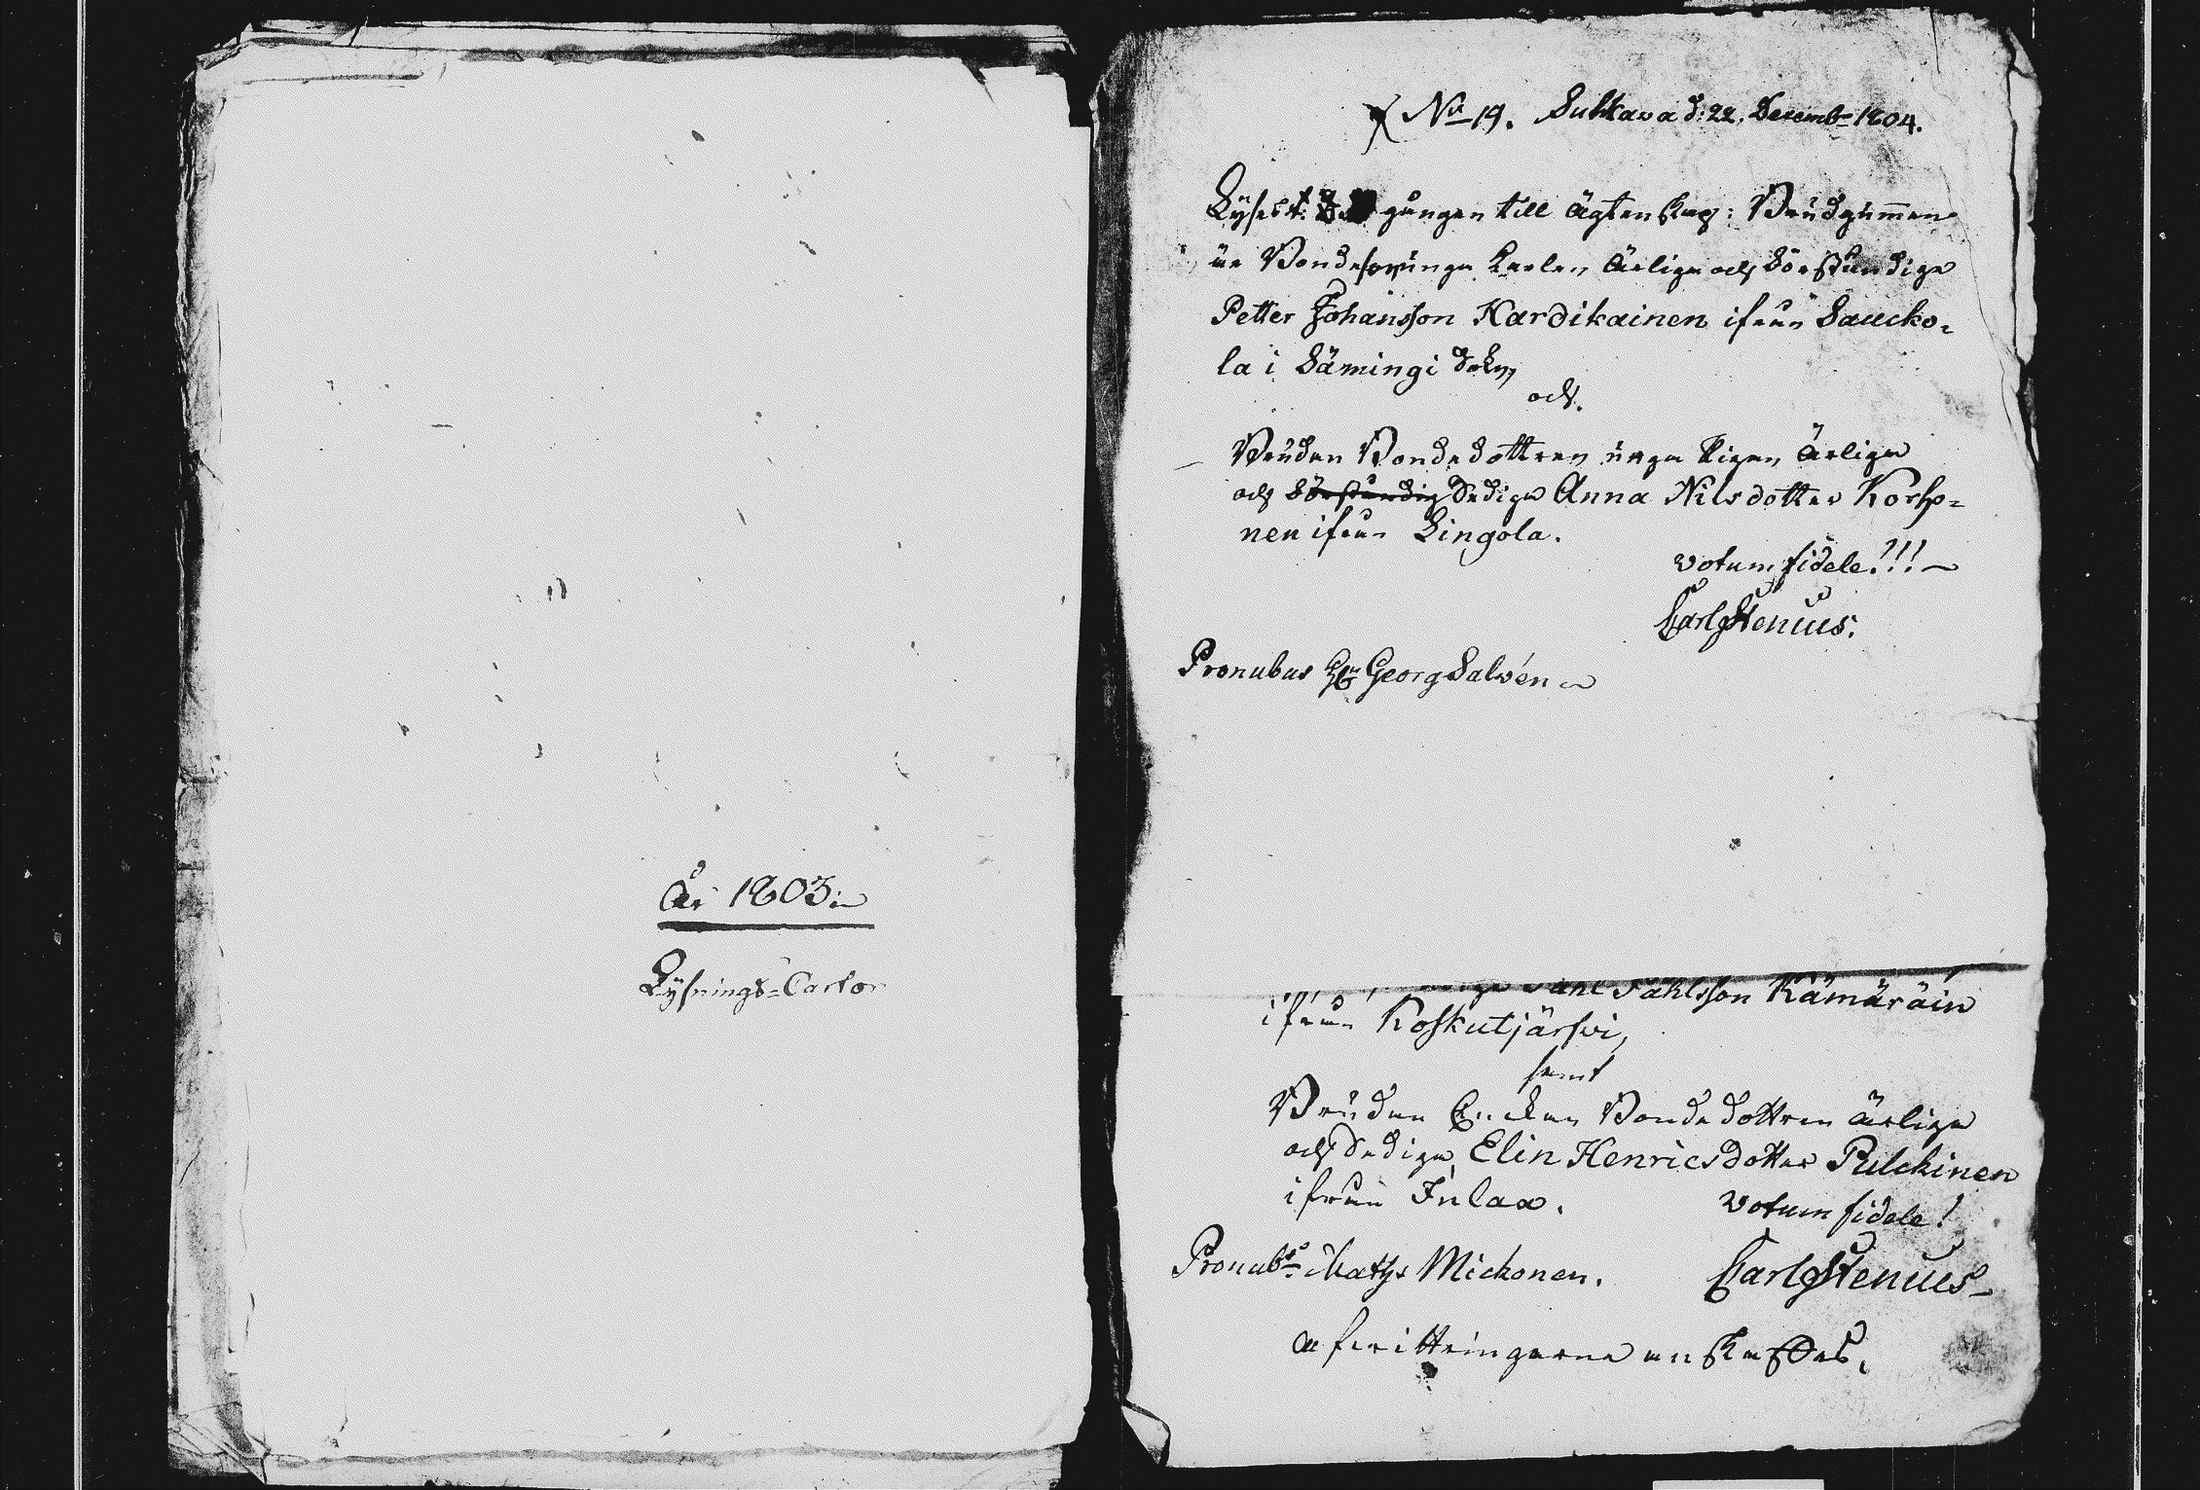 År 1803.
Lysnings-Cartor
No 19. Sulkava d: 22. Decemb 1804.
Lyses 1: gången till ägtenskap: Brudgummen
är Bonde unga Karlen ärlige och beskendige
Petter Johansson Kardikainen ifrån Saucko-
la i Sämingi Sokn
och.
Bruden Bondedottren unga Pigan ärliga
och Sediga Anna Nilsdotter Korho-
nen ifrån Lingola.
Votum fidele!!!
Carl Stenius.
Pronubus Hr Georg Salvén
Pahlsson Kämäräin
ifrån Koskutjärfvi,
samt
Bruden Enckan Bondedottren ärliga
och Sediga Elin Henricsdotter Pulckinen
ifrån Inlax.
Votum fidele!
Pronub: Mats Mickonen.
Carl Stenius